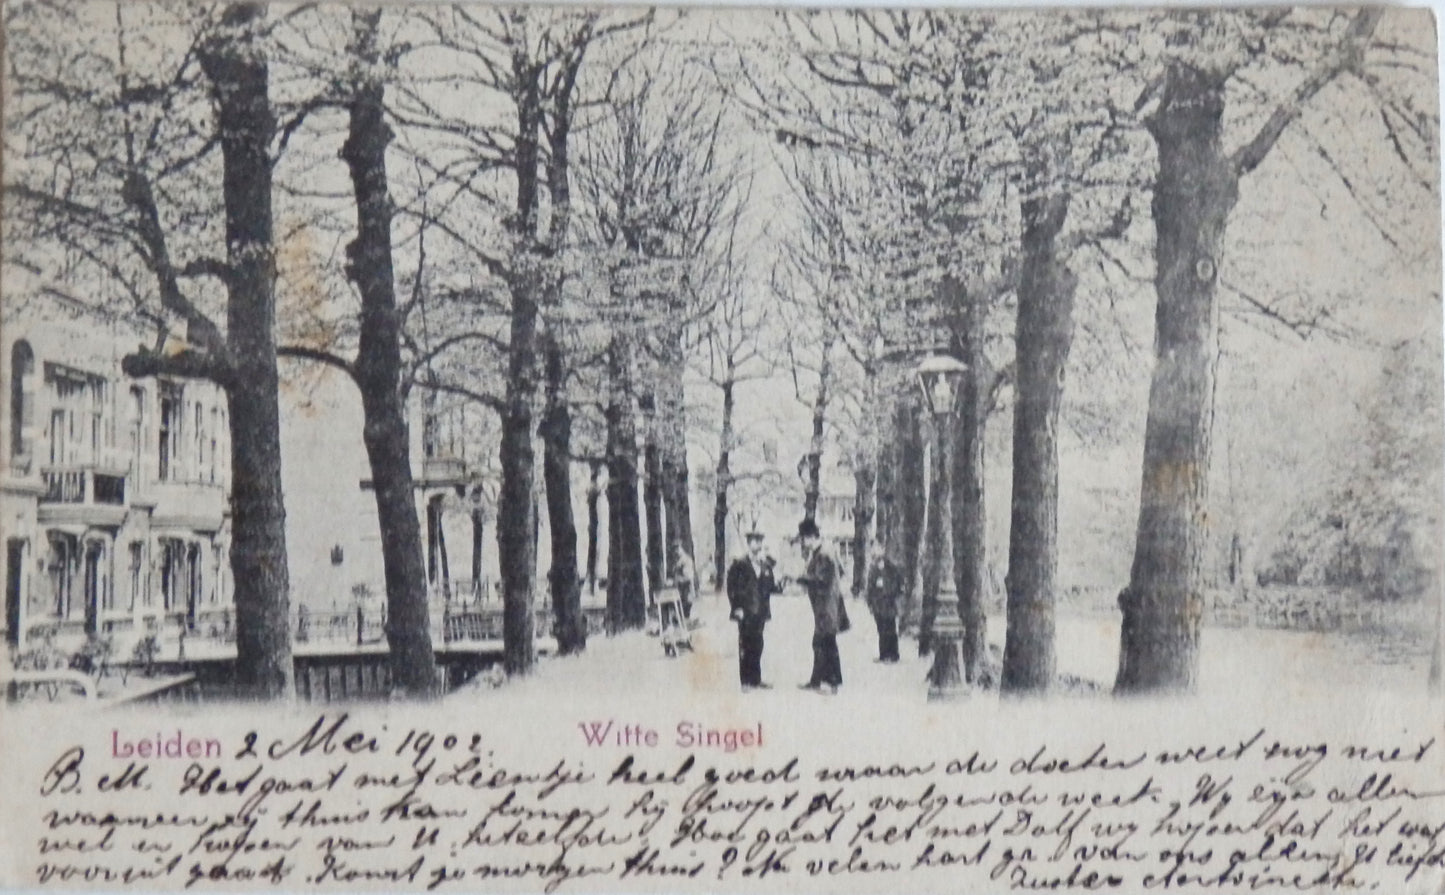 Leiden 2 Mei 1902.
Witte Singel
B. M. Het gaat met Leentje heel goed maar de docter weet nog niet
wanneer zij thuis kan komen hij hoopt de volgende week. Wij zijn allen
wel en hopen van U hetzelfde. Hoe gaat het met Dolf wy hopen dat het wat
vooruit gaat. Komt je morgen thuis? Nu velen hart gr. van ons allen, Je liefh
Zuster Antoinette.